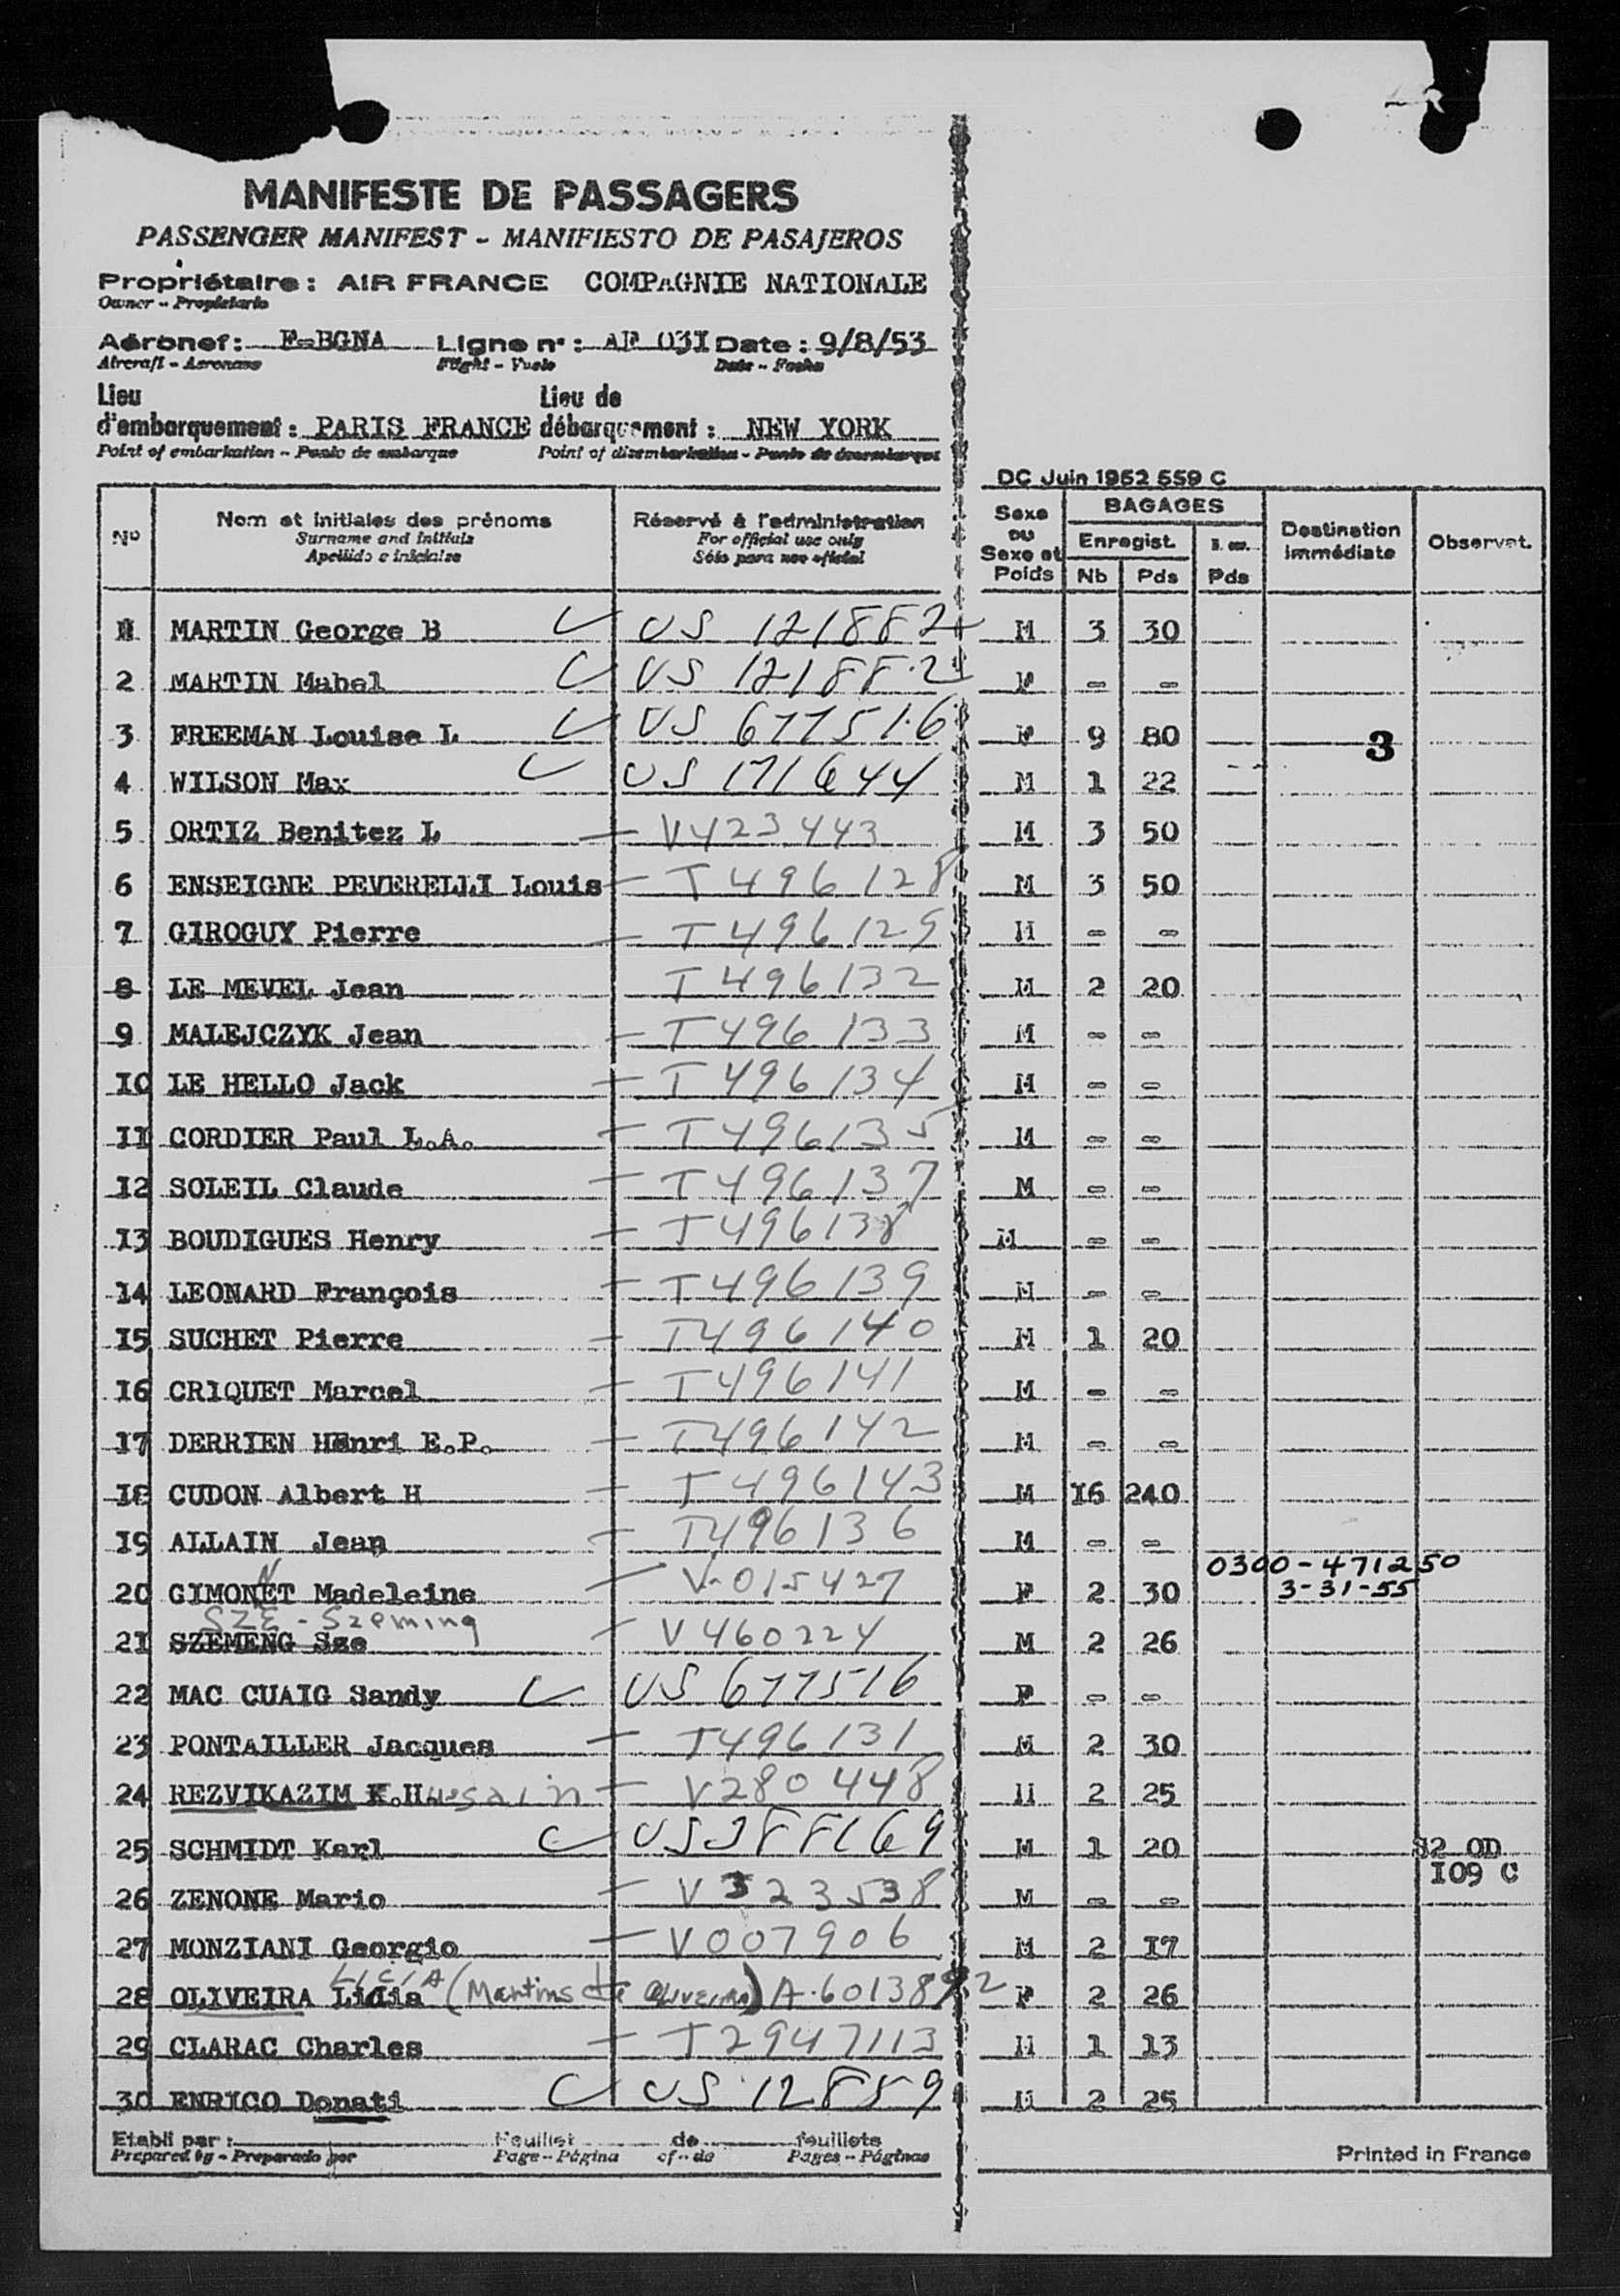 MANIFESTE DE PASSAGERS
PASSENGER MANIFEST - MANIFIESTO DE PASAJEROS
Propriétaire : AIR FRANCE COMPAGNIE NATIONALE
Owner - Propietario
Aéronef : F-BGNA Ligne n° : AF 03I Date : 9/8/53
Aircraft - Aeronave Flight - Vuelo Date - Fecha
Lieu d'embarquement : PARIS FRANCE Lieu de débarquement : NEW YORK
Point of embarkation - Punto de embarque Point of disembarkation - Punto de desembarque
DC Juin 1952 559 C
N° Nom et initiales des prénoms Réservé à l'administration Sexe ou Sexe et Poids BAGAGES Destination immédiate Observat.
Surname and initials For official use only Enregist.
Apellido e iniciales Sólo para uso oficial Nb Pds Pds
1 MARTIN George B US 121882 M 3 30
2 MARTIN Mabel US 121882 F - -
3 FREEMAN Louise L US 677516 F 9 80 3
4 WILSON Max US 171644 M 1 22
5 ORTIZ Benitez L - V423443 M 3 50
6 ENSEIGNE PEVERELLI Louis - T496128 M 3 50
7 GIROGUY Pierre - T496129 M - -
8 LE MEVEL Jean T496132 M 2 20
9 MALEJCZYK Jean - T496133 M - -
I0 LE HELLO Jack - T496134 M - -
II CORDIER Paul L.A. - T496135 M - -
I2 SOLEIL Claude - T496137 M - -
I3 BOUDIGUES Henry - T496138 M - -
I4 LEONARD François - T496139 M - -
I5 SUCHET Pierre - T496140 M 1 20
I6 CRIQUET Marcel - T496141 M - -
I7 DERRIEN HEnri E.P. - T496142 M - -
I8 CUDON Albert H - T496143 M I6 240
I9 ALLAIN Jean - T496136 M - -
0300-471250
N
20 GIMONET Madeleine - V-015427 F 2 30 3-31-55
SZE - Szeming
2I SZEMENG Sze - V460224 M 2 26
22 MAC CUAIG Sandy US 677516 F - -
23 PONTAILLER Jacques - T496131 M 2 30
24 REZVIKAZIM K.Hussain - V280448 M 2 25
25 SCHMIDT Karl M 1 20 S2 OD
I09 C
26 ZENONE Mario - V323538 M - -
27 MONZIANI Georgio - V007906 M 2 I7
LICIA
28 OLIVEIRA Lidia (Martins de Oliveira) F 2 26
29 CLARAC Charles - T2947113 M 1 13
30 ENRICO Donati US 12859 M 2 25
Etabli par : Feuillet de feuillets
Prepared by - Preparado por Page - Página of - de Pages - Páginas
Printed in France